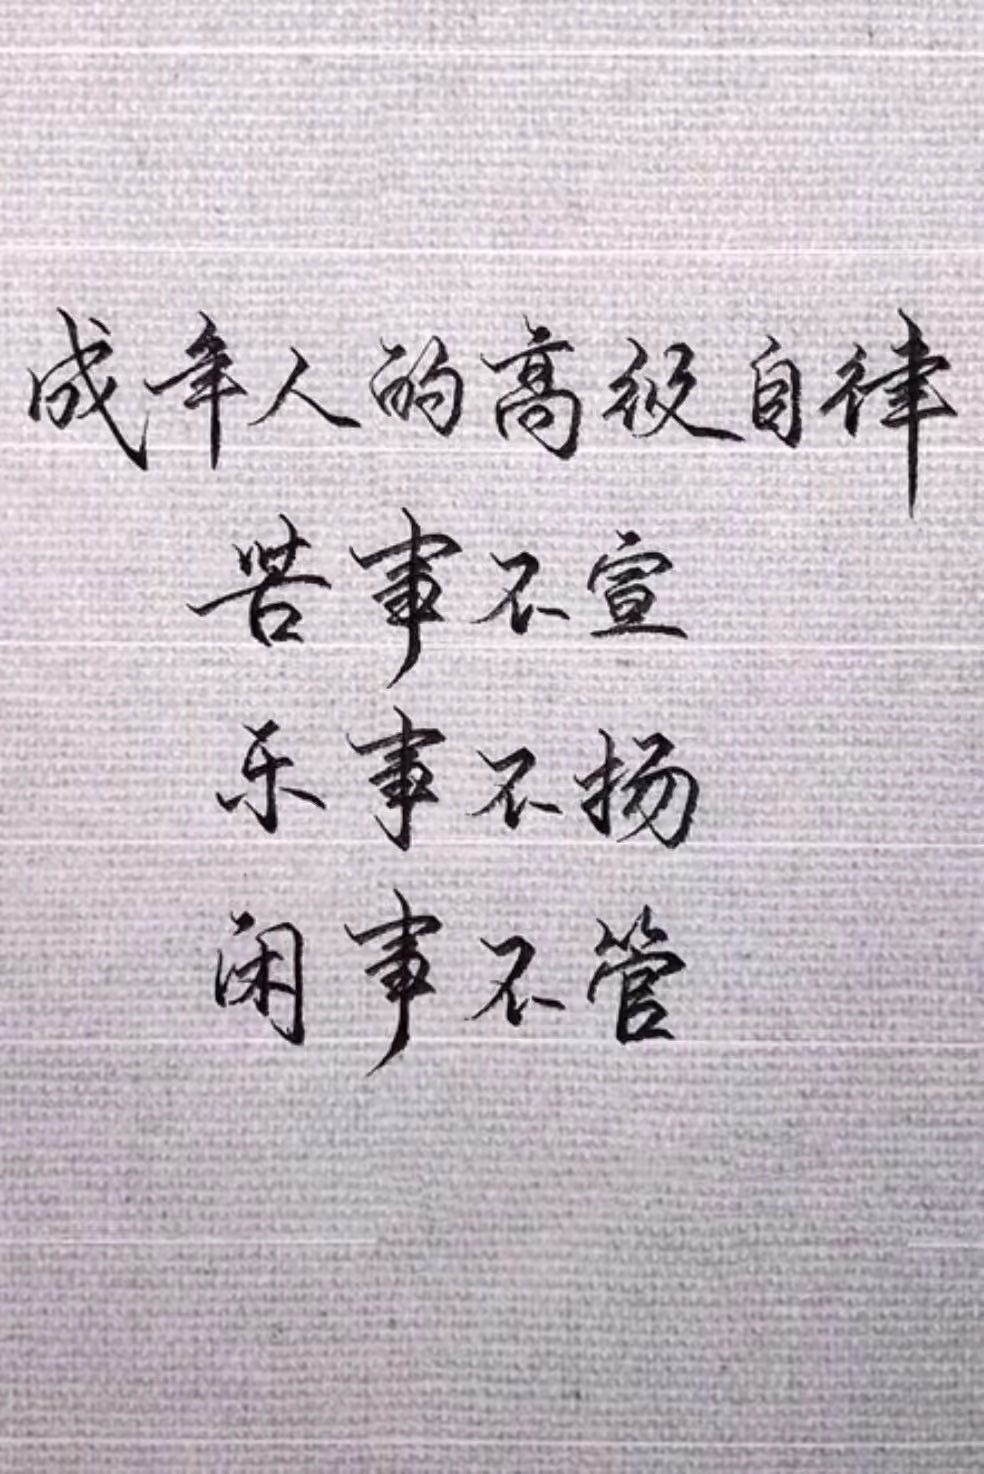 成年人的高级自律
苦事不宣
乐事不扬
闲事不管